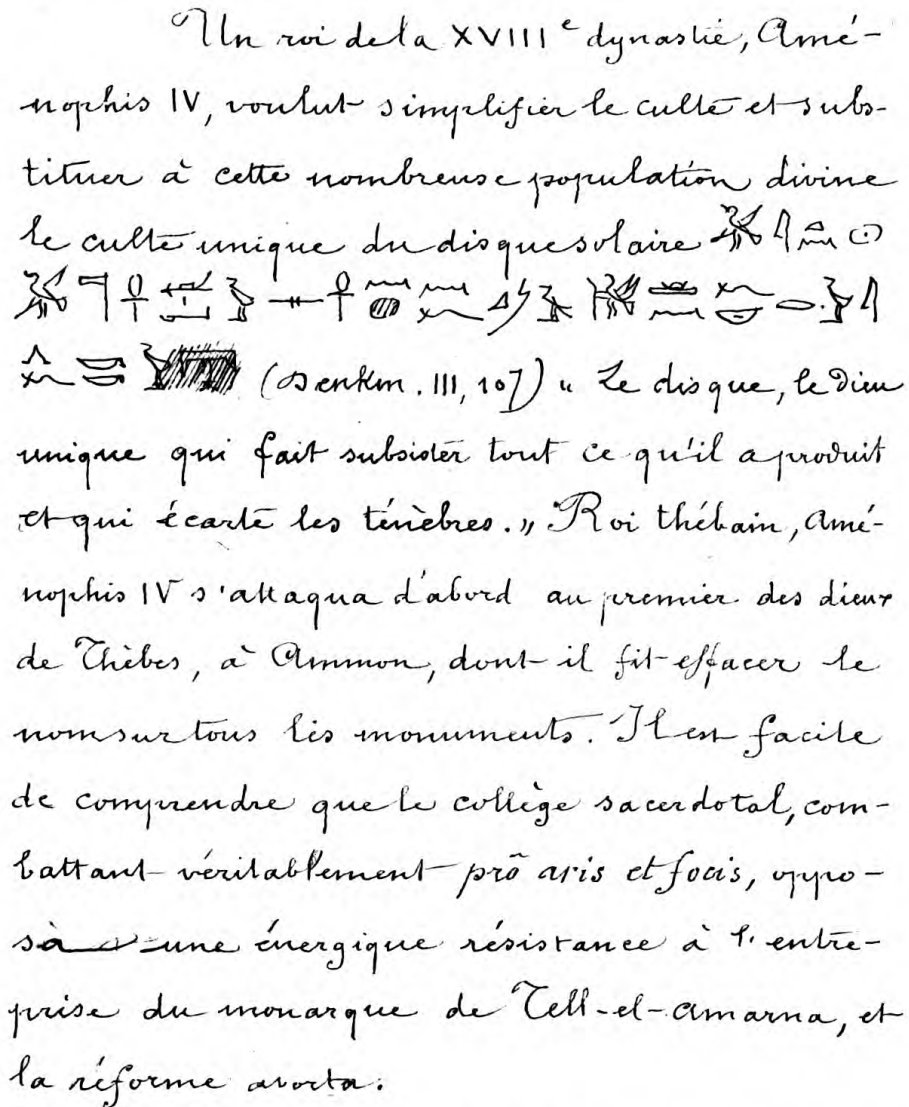 Un roi de la XVIIIe dynastie, Amé-
nophis IV, voulut simplifier le culte et subs-
tituer à cette nombreuse population divine
le culte unique du disque solaire
(Denkm. III, 107) « Le disque, le Dieu
unique qui fait subsister tout ce qu'il a produit
et qui écarte les ténèbres. » Roi thébain, Amé-
nophis IV s'attaqua d'abord au premier des dieux
de Thèbes, à Ammon, dont il fit effacer le
nom sur tous les monuments. Il est facile
de comprendre que le collège sacerdotal, com-
battant véritablement prô aris et focis, oppo-
sa une énergique résistance à l'entre-
prise du monarque de Tell-el-Amarna, et
la réforme avorta.